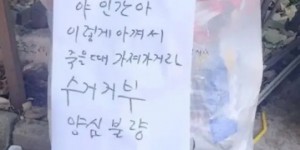 야 인간아
이렇게 아껴써
죽을때 가져가거라
수거거부
양심불량